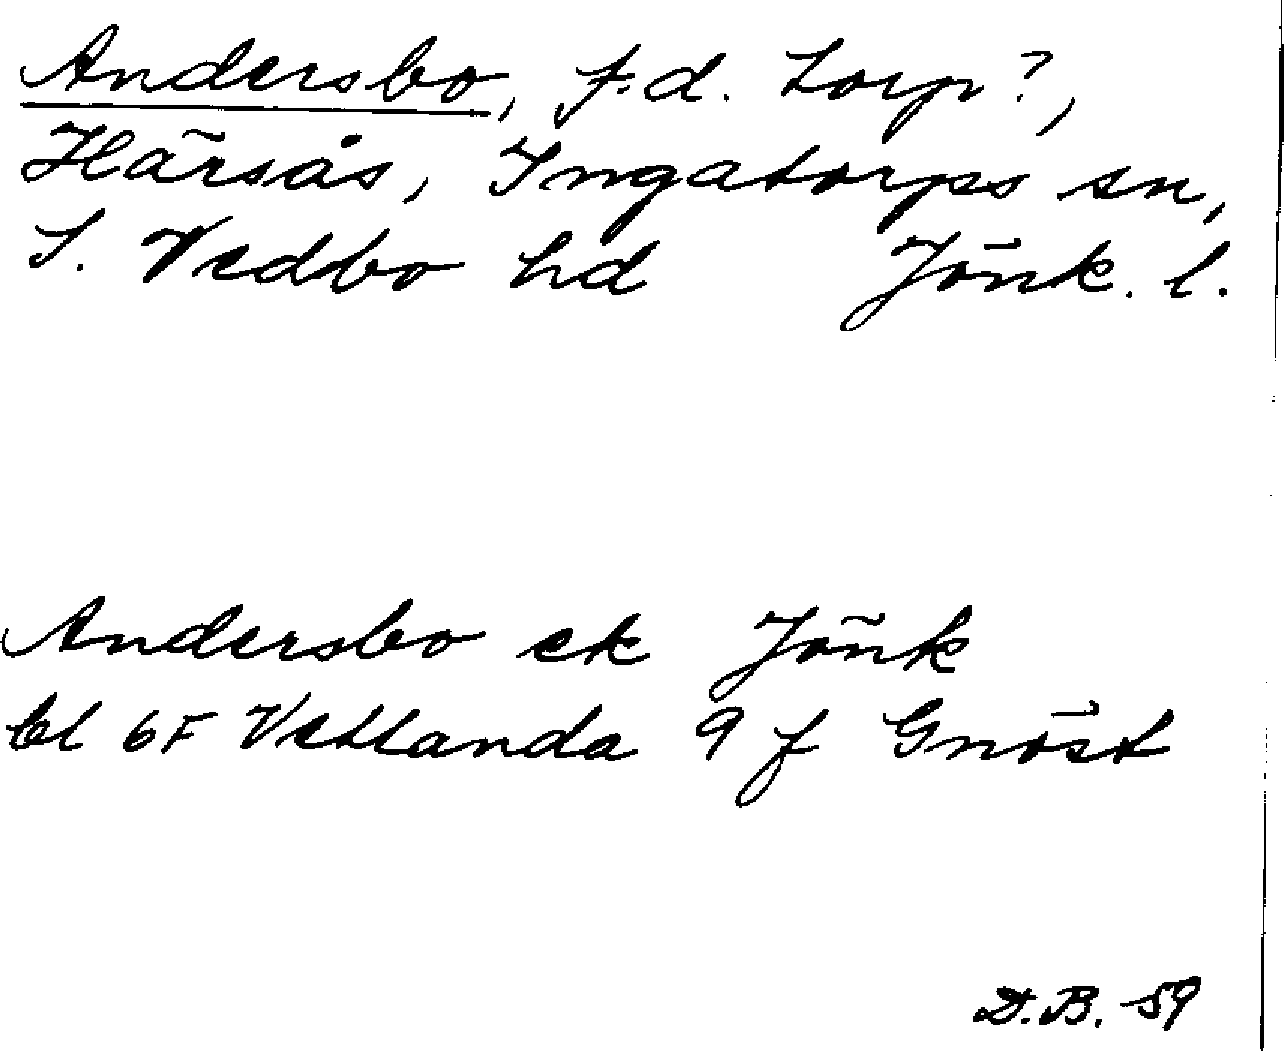 Andersbo, f.d. torp?,
Härsås, Ingatorps sn,
S. Vedbo hd Jönk. l.
Andersbo ek Jönk
bl 6F Vetlanda 9 f Gnöst
D.B. -59